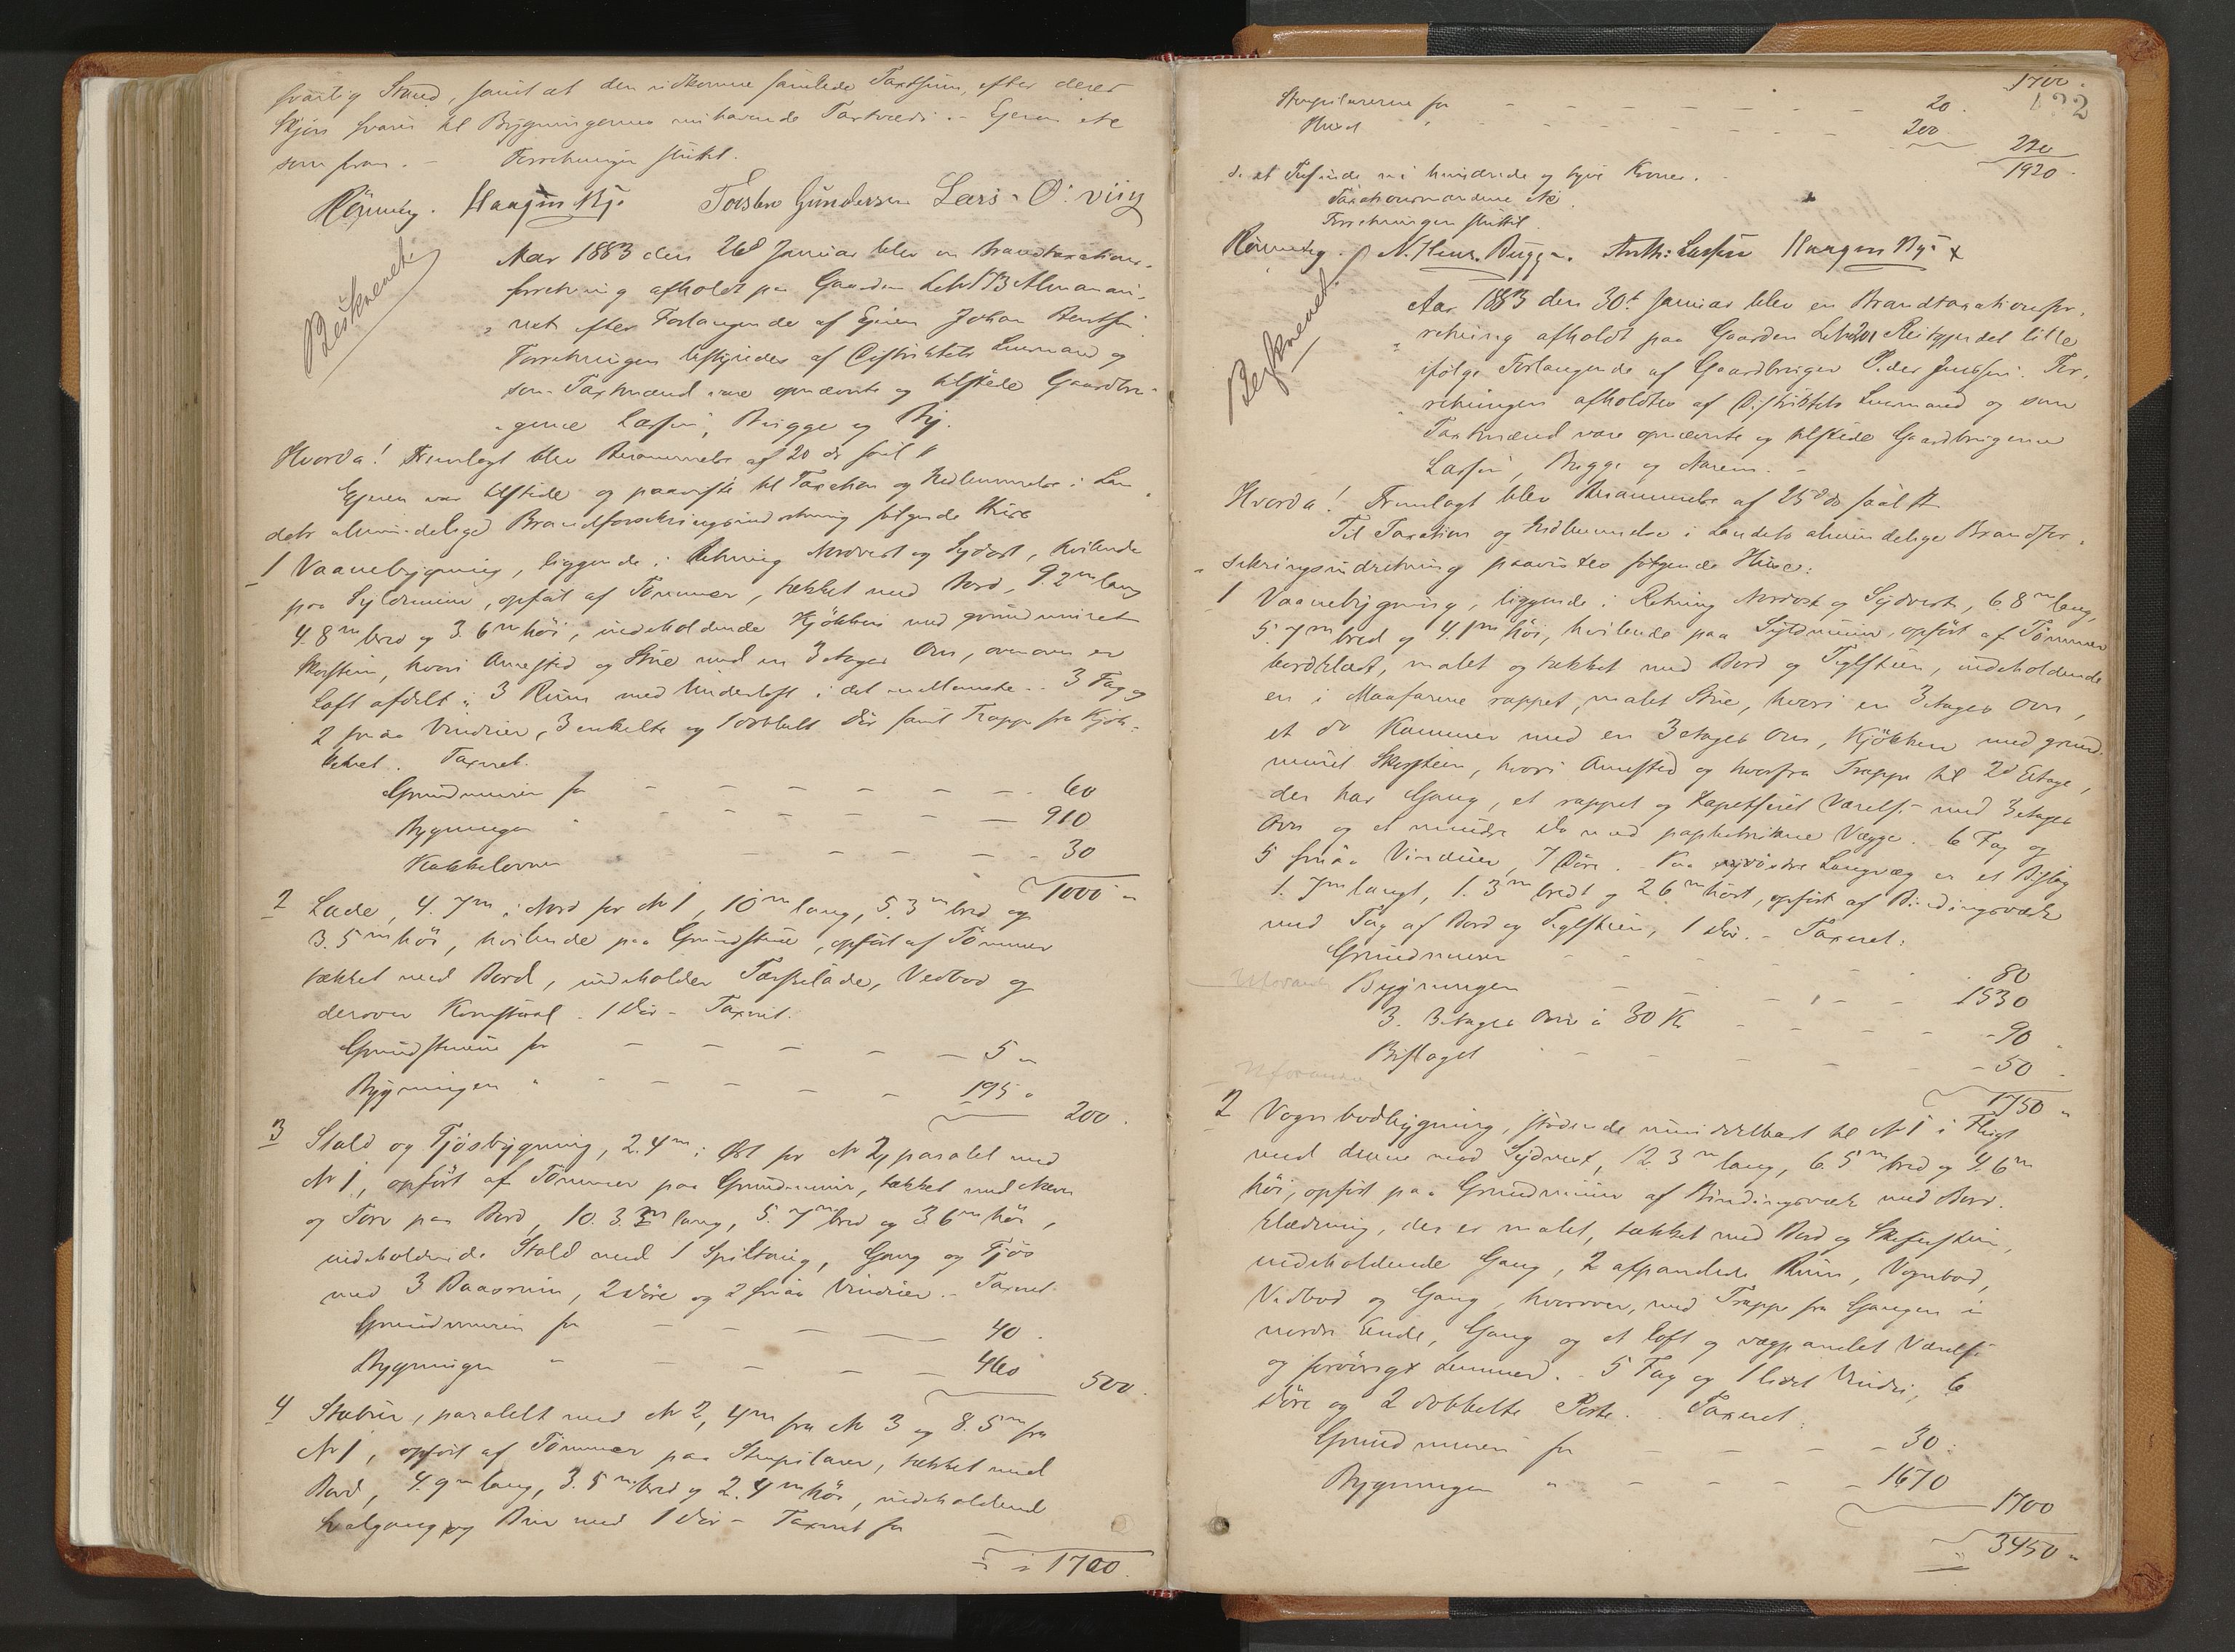 svarlig Stand, samt at den udkomne samlede Taxtsum, efter deres
Skjøn svarer til Bygningernes nuhavende Taxtværdi. – Ejeren etc
som fram. – Forretningen sluttet.
Rönning. Haagen By. Torsten Gundersen Lars. O. viig
Beskrevet.
Aar 1883 den 26d Januar blev en Brandtaxations-
forretning afholdt paa Gaarden
efter Forlangende af Ejeren Johan Berntsen
Forretningen bestyredes af Distriktets Lensmand og
som Taxtmænd vare opnævnte og tilstede Gaardbru-
gerne Lassen, Brigge og By.
Hvorda! Fremlagt blev Berammelse af 20 ds saal #
Ejeren var tilstede og paaviste til Taxation og Indlemmelse i Lan
dets almindelige Brandforsikringsindretning følgende Huse
1 Vaanebygning, liggende i Retning Nordvest og Sydost, hvilende
paa Syldmuur, opført af Tømmer, tækket med Bord, 9.2m lang
4.8m bred og 3.6m høi, indeholdende Kjökken med grundmuret
Skorsten, hvori Arnested og Stue med en 3 etages Ovn, ovenover er
Loft afdelt i 3 Rum med Underloft i det mellemste. 3 Fag og
2 smaa Vinduer, 3 enkelte og 1 dobbelt Dør samt Trappe fra Kjök-
kenet. Taxeret.
Grundmuren for – – – – – – – 60
Bygningen " – – – – – – 910
Kakkelovnen – – – – 30
1000 "
2 Lade, 4.7m i Nord for No 1, 10m lang, 5.3m bred og
3.5m høi, hvilende paa Grundstene, opført af Tömmer
tækket med Bord, indeholder Tærskelade, Vedbod og
derover Kornstaal. 1 Dør – Taxeret.
Grundstenene for – – – – – 5 "
Bygningen " – – – – – 195 "
200.
3 Stald og Fjösbygning, 2.4m i Øst for No 2, paralel med
No 1, opført af Tömmer paa Grundmuur, tækket med Næver
og Torv paa Bord, 10.3m lang, 5.7m bred og 3.6m høi,
indeholdende Stald med 1 Spiltoug, Gang og Fjös
med 3 Baasrum, 2 Döre og 2 smaa Vinduer. – Taxeret
Grundmuren for – – – – – 40.
Bygningen " – – – – 460
500.
4 Stabur, paralelt med No 2, 4m fra No 3 og 8.5m fra
No 1, opført af Tömmer paa Stenpilarer, tækket med
Bord, 4.9m lang, 3.5m bred og 2.4m høi, indeholdende
Svalgang og Bur med 1 Dør – Taxeret for
1700.
1700.
132
Stenpilarerne for – – – – – – 20.
Huset " – – – – – – 200
220
1920.
d. et Tusinde ni hundrede og tyve Kroner.
Taxationsmændene etc.
Forretningen sluttet.
Rönning. N. Henr. Brigge. Anth: Lassen Haagen By
Beskrevet.
Aar 1883 den 30te Januar blev en Brandtaxationsfor-
retning afholdt paa Gaarden Reitgjerdet lille
ifølge Forlangende af Gaardbruger Peder Jenssen. For-
retningen afholdtes af Distriktets Lensmand og som
Taxtmænd vare opnævnte og tilstede Gaardbrugerne
Lassen, Brigge og Aarem. –
Hvorda! Fremlagt blev Berammelse af 25d ds saal #
Til Taxation og Indlemmelse i Landets almindelige Brandfor-
sikringsindretning paavistes følgende Huse:
1 Vaanebygning, liggende i Retning Nordost og Sydvest, 6.8m lang,
5.7m bred og 4.1m høi, hvilende paa Syldmuur, opført af Tömmer
bordklædt, malet og tækket med Bord og Teglsteen, indeholdende
en i Maasarene rappet, malet Stue, hvori en 3 etages Ovn,
et do Kammer med en 3 etages Ovn, Kjökken med grund-
muret Skorsten, hvori Arnested og hvorfra Trappe til 2d Etage,
der har Gang, et rappet og tapetseret Værelse med 3 etages
Ovn og et mindre do med papbetrukne Vægge. 6 Fag og
5 smaa Vinduer, 7 Døre. – Paa nordre Langvæg er et Bislag
1.7m langt, 1.3m bredt og 2.6m høit, opført af Bindingsværk
med Tag af Bord og Teglsteen, 1 Dör. – Taxeret:
Grundmuren – – – – – 80
Bygningen – – – – – 1530
3. 3 etages Ovne à 30 Kr – – – – 90
Bislaget – – – – 50
1750 "
2 Vognbodbygning, stödende umiddelbart til No 1 i Flugt
med denne mod Sydvest, 12.3m lang, 6.5m bred og 4.6m
höi, opført paa Grundmuur af Bindingsværk med Bord-
klædning, der er malet, tækket med Bord og Skifersten,
indeholdende Gang, 2 afpanelede Rum, Vognbod,
Vedbod og Gang, hvorover, med Trappe fra Gangen i
nordre Ende, Gang og et loft og vægpanelet Værelse
og forövrigt Lemmer. – 5 Fag og 1 lidet Vindue, 6
Döre og 2 dobbelte Porte. Taxeret:
Grundmuren for – – – – 30.
Bygningen " – – – – 1670
1700
3450 "